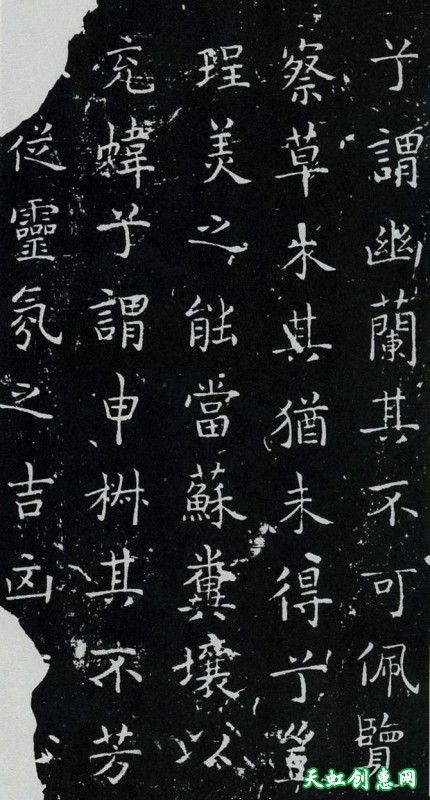 兮謂幽蘭其不可佩覽
察草木其猶未得兮豈
珵美之能當蘇糞壤以
充幃兮謂申椒其不芳
從靈氛之吉占
天虹创惠网